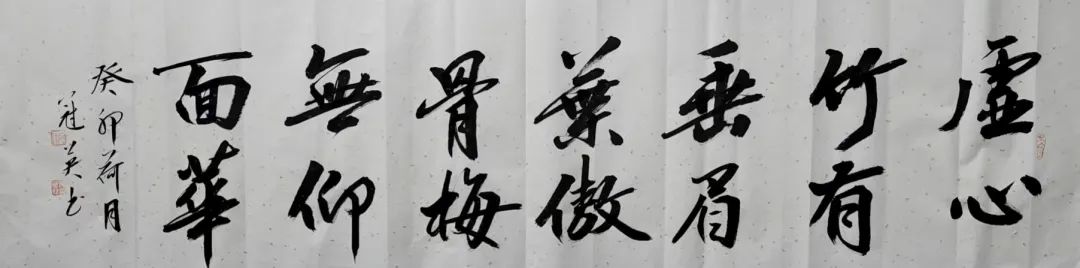 虛心
竹有
垂眉
葉傲
骨梅
無仰
面華
癸卯荷月
冠英书